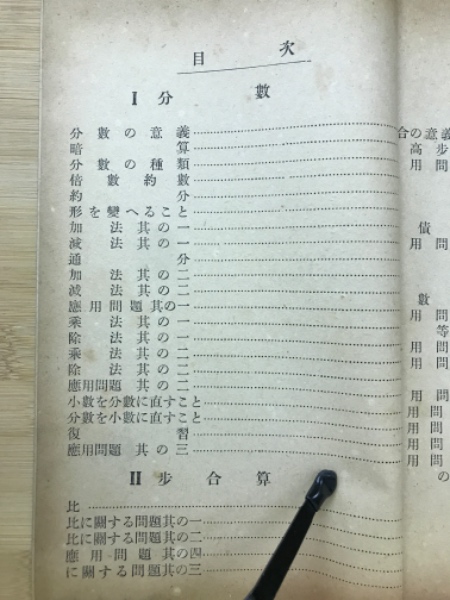 目次
I 分數
分數の意義
暗算
分數の種類
倍數約數
約分
形を變へること
加法其の一
減法其の一
通分
加法其の二
減法其の二
應用問題其の一
乘法其の一
除法其の一
乘法其の二
除法其の二
應用問題 其の二
小數を分數に直すこと
分數を小數に直すこと
復習
應用問題 其の三
II 步合算
比
比に關する問題其の一
比に關する問題其の二
應用問題其の四
に關する問題其の三
合の意義
高步
用問
債
用問
數
用問
等
用問
用問
用問
用問
用問
用問
用問
の